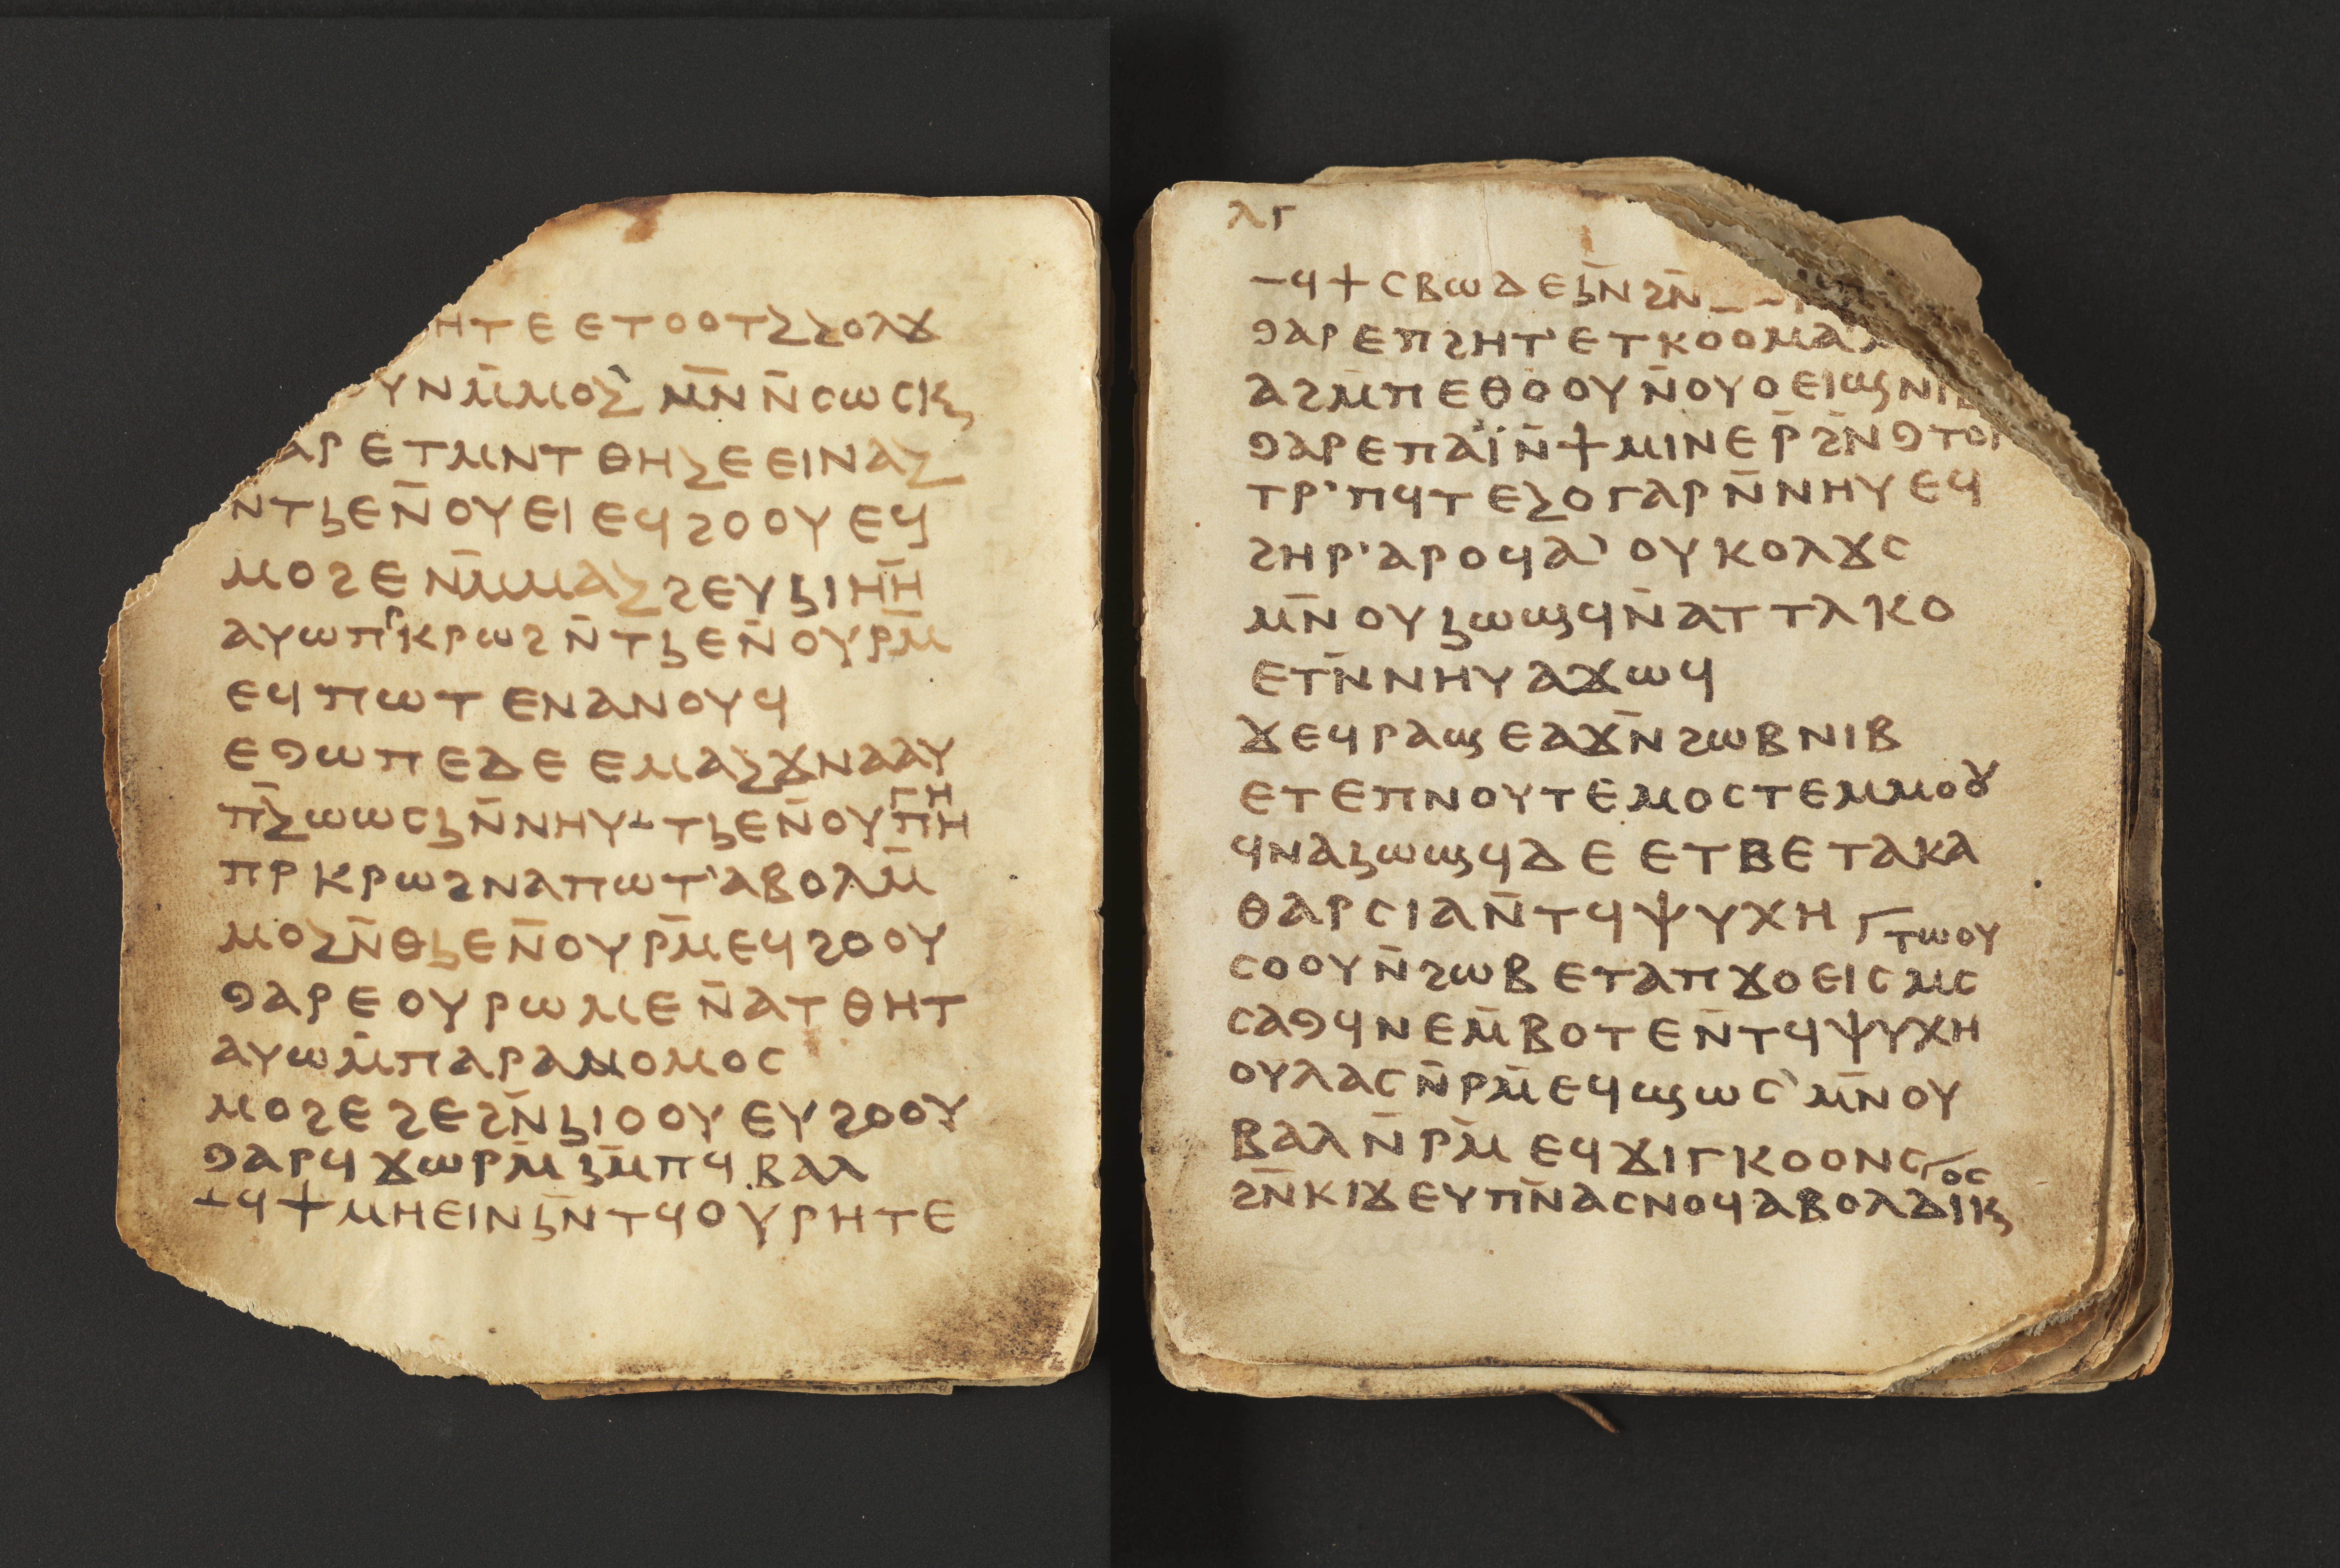 ⲏⲧⲉ ⲉⲧⲟⲟⲧⲹⲹⲟⲗϫ
ⲩⲛⲙ̄ⲙⲟⲹ ⲙ̄ⲛ̄ⲛ̄ⲥⲱⲥⲕϧ
ⲁⲣⲉⲧⲙⲛⲧⲑⲏⲹⲉⲉⲓⲛⲁⲹ
ⲛⲧϧⲉⲛ̄ⲟⲩⲉⲓⲉϥϩⲟⲟⲩⲉϥ
ⲙⲟϩⲉⲛ̄ⲙⲙⲁⲹϩⲉⲩϧⲓⲏⲏ̄
ⲁⲩⲱⲡⲣⲕⲣⲱϩⲛ̄ⲧϧⲉⲛ̄ⲟⲩⲣⲙ̄
ⲉϥⲡⲱⲧⲉⲛⲁⲛⲟⲩϥ
ⲉⳋⲱⲡⲉⲇⲉⲉⲙⲁⲹϫⲛⲁⲁⲩ
ⲡ̄ⲹⲱⲱⲥϧⲛ̄ⲛⲏⲩⲳⲧϧⲉⲛ̄ⲟⲩⲡⲏⲅⲏ
ⲡⲣⲕⲣⲱϩⲛⲁⲡⲱⲧ'ⲁⲃⲟⲗⲙ̄
ⲙⲟⲹⲛ̄ⲑϧⲉⲛ̄ⲟⲩⲣⲙ̄ⲉϥϩⲟⲟⲩ
ⳋⲁⲣⲉⲟⲩⲣⲱⲙⲉⲛ̄ⲁⲧⲑⲏⲧ
ⲁⲩⲱⲙ̄ⲡⲁⲣⲁⲛⲟⲙⲟⲥ
ⲙⲟϩⲉϩⲉϩⲛ̄ϧⲓⲟⲟⲩⲉⲩϩⲟⲟⲩ
ⳋⲁⲣϥϫⲱⲣⲙ̄ϧⲙ̄ⲡϥⲃⲁⲗ
ⲳϥϯⲙⲏⲉⲓⲛϧⲛ̄ⲧϥⲟⲩⲣⲏⲧⲉ
ⲗⲅ
ⲻϥϯⲥⲃⲱⲇⲉϧⲛ̄ϩⲛ̄
ⳋⲁⲣⲉⲡϩⲏⲧ'ⲉⲧⲕⲟⲟⲙⲁⲗ
ⲁϩⲙ̄ⲡⲉⲑⲟⲟⲩⲛ̄ⲟⲩⲟⲉⲓϣⲛⲓⲃ
ⳋⲁⲣⲉⲡⲁⲓ̈ⲛ̄ϯⲙⲓⲛⲉⲣ̄ϩⲛ̄ⳋⲧⲟⲣ
ⲧⲣ'ⲡϥⲧⲉⲹⲟⲅⲁⲣⲛ̄ⲛⲏⲩⲉϥ
ϩⲏⲣ'ⲁⲣⲟϥⲁ'ⲟⲩⲕⲟⲗϫⲥ
ⲙ̄ⲛⲟⲩϧⲱϣϥⲛ̄ⲁⲧⲧⲁⲕⲟ
ⲉⲧⲛ̄ⲛⲏⲩⲁϫⲱϥ
ϫⲉϥⲣⲁϣⲉⲁϫⲛ̄ϩⲱⲃⲛⲓⲃ
ⲉⲧⲉⲡⲛⲟⲩⲧⲉⲙⲟⲥⲧⲉⲙⲙⲟⲩ
ϥⲛⲁϧⲱϣϥⲇⲉⲉⲧⲃⲉⲧⲁⲕⲁ
ⲑⲁⲣⲥⲓⲁⲛ̄ⲧϥⲯⲩⲭⲏ
ⲧⲱⲟⲩ
ⲥⲟⲟⲩⲛ̄ϩⲱⲃⲉⲧⲁⲡϫⲟⲉⲓⲥⲙⲥ
ⲥⲁⳋϥⲛⲉⲙ̄ⲃⲟⲧⲉⲛ̄ⲧϥⲯⲩⲭⲏ
ⲟⲩⲗⲁⲥⲛ̄ⲣⲙ̄ⲉϥϣⲱⲥ'ⲙ̄ⲛⲟⲩ
ⲃⲁⲗⲛ̄ⲣⲙ̄ⲉϥϫⲓⲅⲕⲟⲟⲛⲥ
ⲟⲥ
ϩⲛ̄ⲕⲓϫⲉⲩⲡⲛ̄ⲁⲥⲛⲟϥⲁⲃⲟⲗⲇⲓⲕϧ